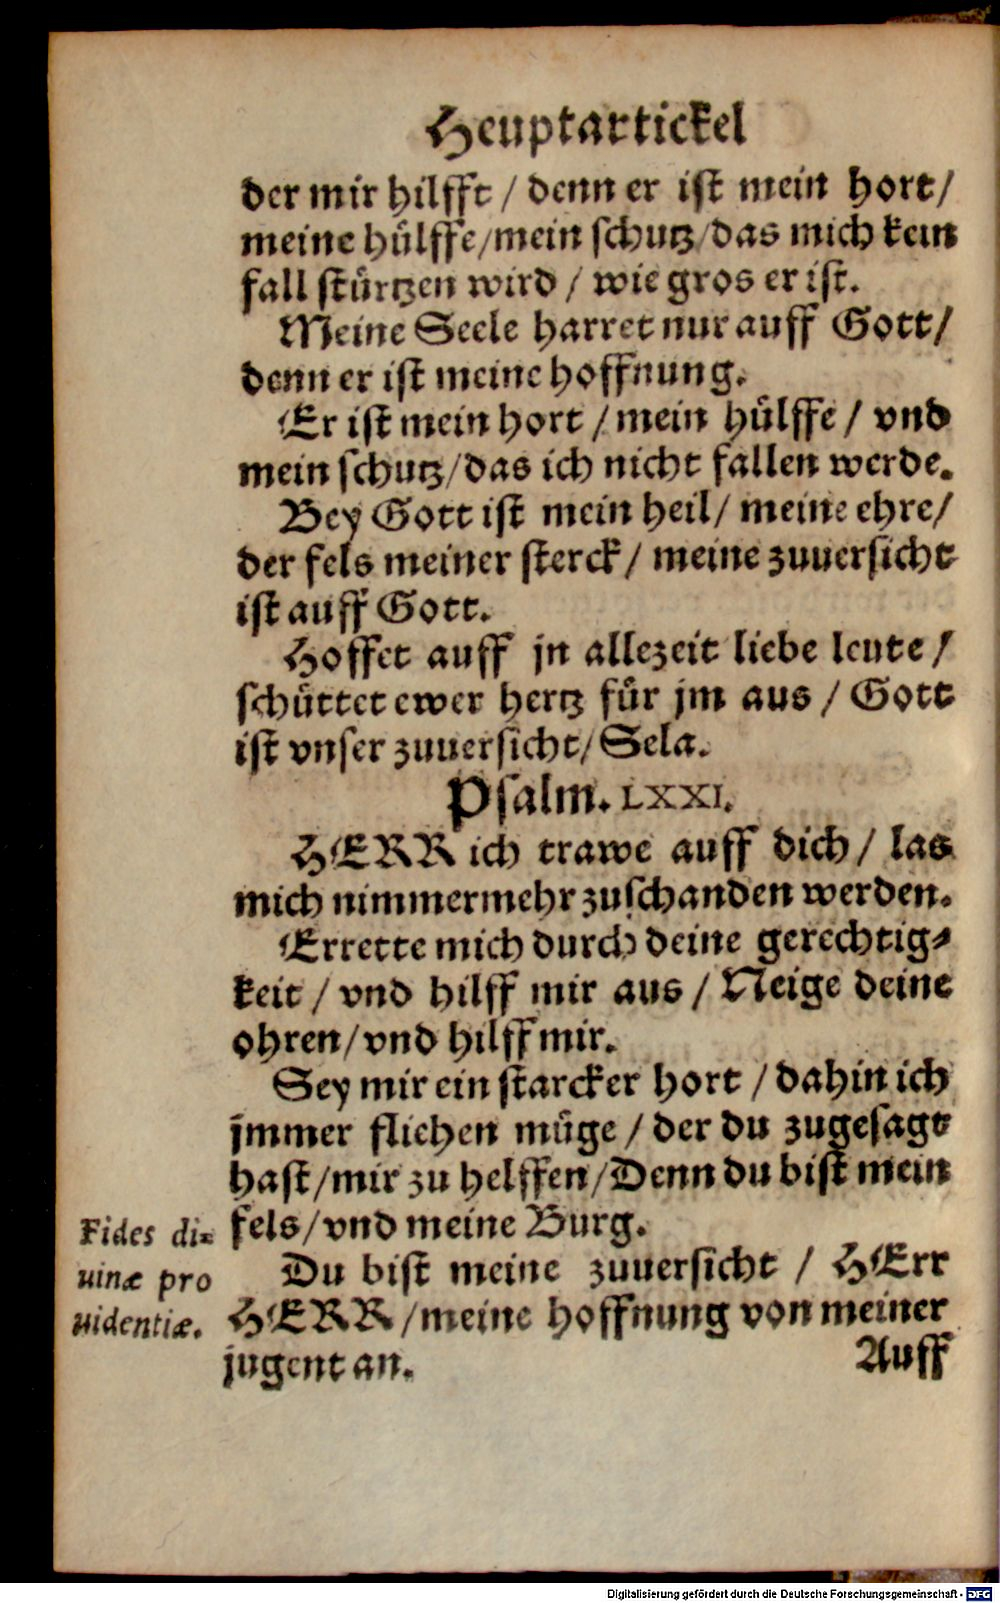 Heuptartickel
der mir hilfft / denn er ist mein hort/
meine hülffe/mein schutz/das mich kein
fall stürtzen wird / wie gros er ist.
Meine Seele harret nur auff Gott/
denn er ist meine hoffnung.
Er ist mein hort / mein hülffe / vnd
mein schutz/das ich nicht fallen werde.
Bey Gott ist mein heil/ meine ehre/
der fels meiner sterck/ meine zuuersicht
ist auff Gott.
Hoffet auff jn allezeit liebe leute /
schüttet ewer hertz für jm aus / Gott
ist vnser zuuersicht/ Sela.
Psalm. LXXI.
HERR ich trawe auff dich / las
mich nimmermehr zuschanden werden.
Errette mich durch deine gerechtig⸗
keit / vnd hilff mir aus / Neige deine
ohren/vnd hilff mir.
Sey mir ein starcker hort / dahin ich
jmmer fliehen müge / der du zugesagt
hast/mir zu helffen/Denn du bist mein
fels/vnd meine Burg.
Fides di⸗
uinæ pro
uidentiæ.
Du bist meine zuuersicht / HErr
HERR/meine hoffnung von meiner
jugent an.
Auff
Digitalisierung gefördert durch die Deutsche Forschungsgemeinschaft - DFG